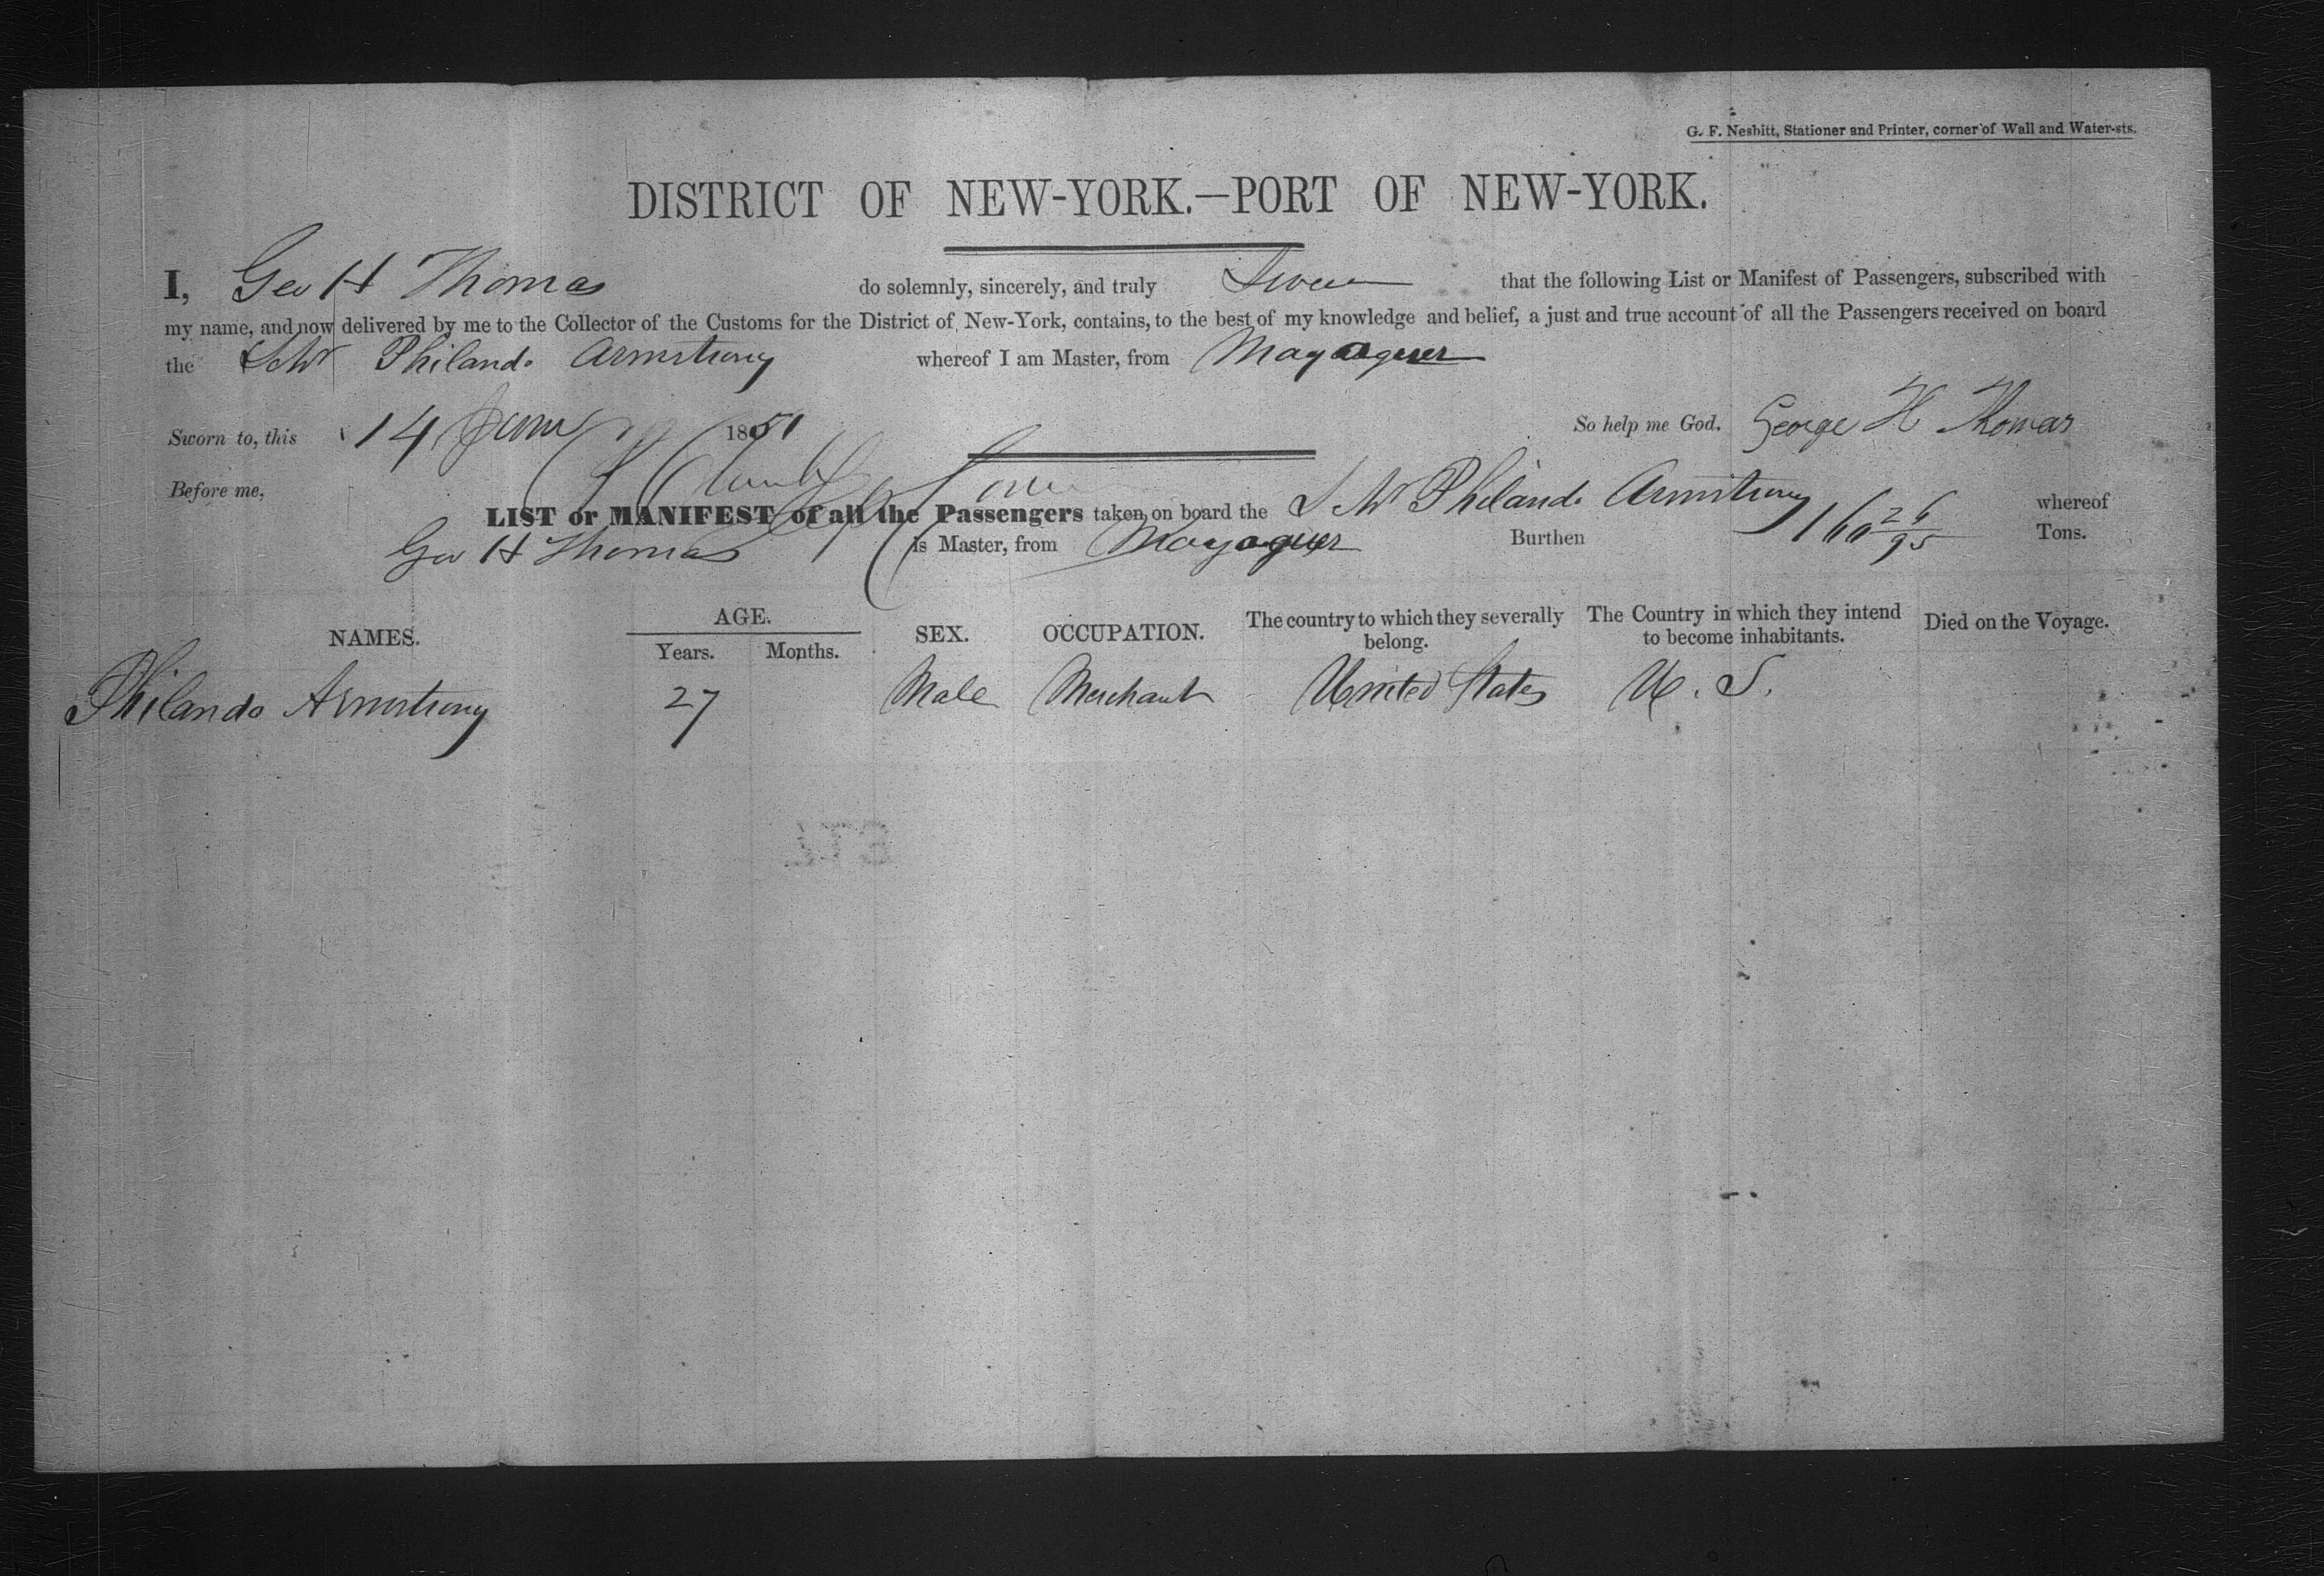 G. F. Nesbitt, Stationer and Printer, corner of Wall and Water-sts.
DISTRICT OF NEW-YORK.—PORT OF NEW-YORK.
I, Geo H Thomas do solemnly, sincerely, and truly Swear that the following List or Manifest of Passengers, subscribed with
my name, and now delivered by me to the Collector of the Customs for the District of New-York, contains, to the best of my knowledge and belief, a just and true account of all the Passengers received on board
the Schr Philando Armstrong whereof I am Master, from Mayaguez
Sworn to, this 14 June 1851 So help me God. George H Thomas
Before me,
LIST or MANIFEST of all the Passengers taken on board the Schr Philando Armstrong whereof
Geo H Thomas is Master, from Mayaguez Burthen 160 26/95 Tons.
NAMES. AGE. Years. Months. SEX. OCCUPATION. The country to which they severally belong. The Country in which they intend to become inhabitants. Died on the Voyage.
Philando Armstrong 27 Male Merchant United States U. S.